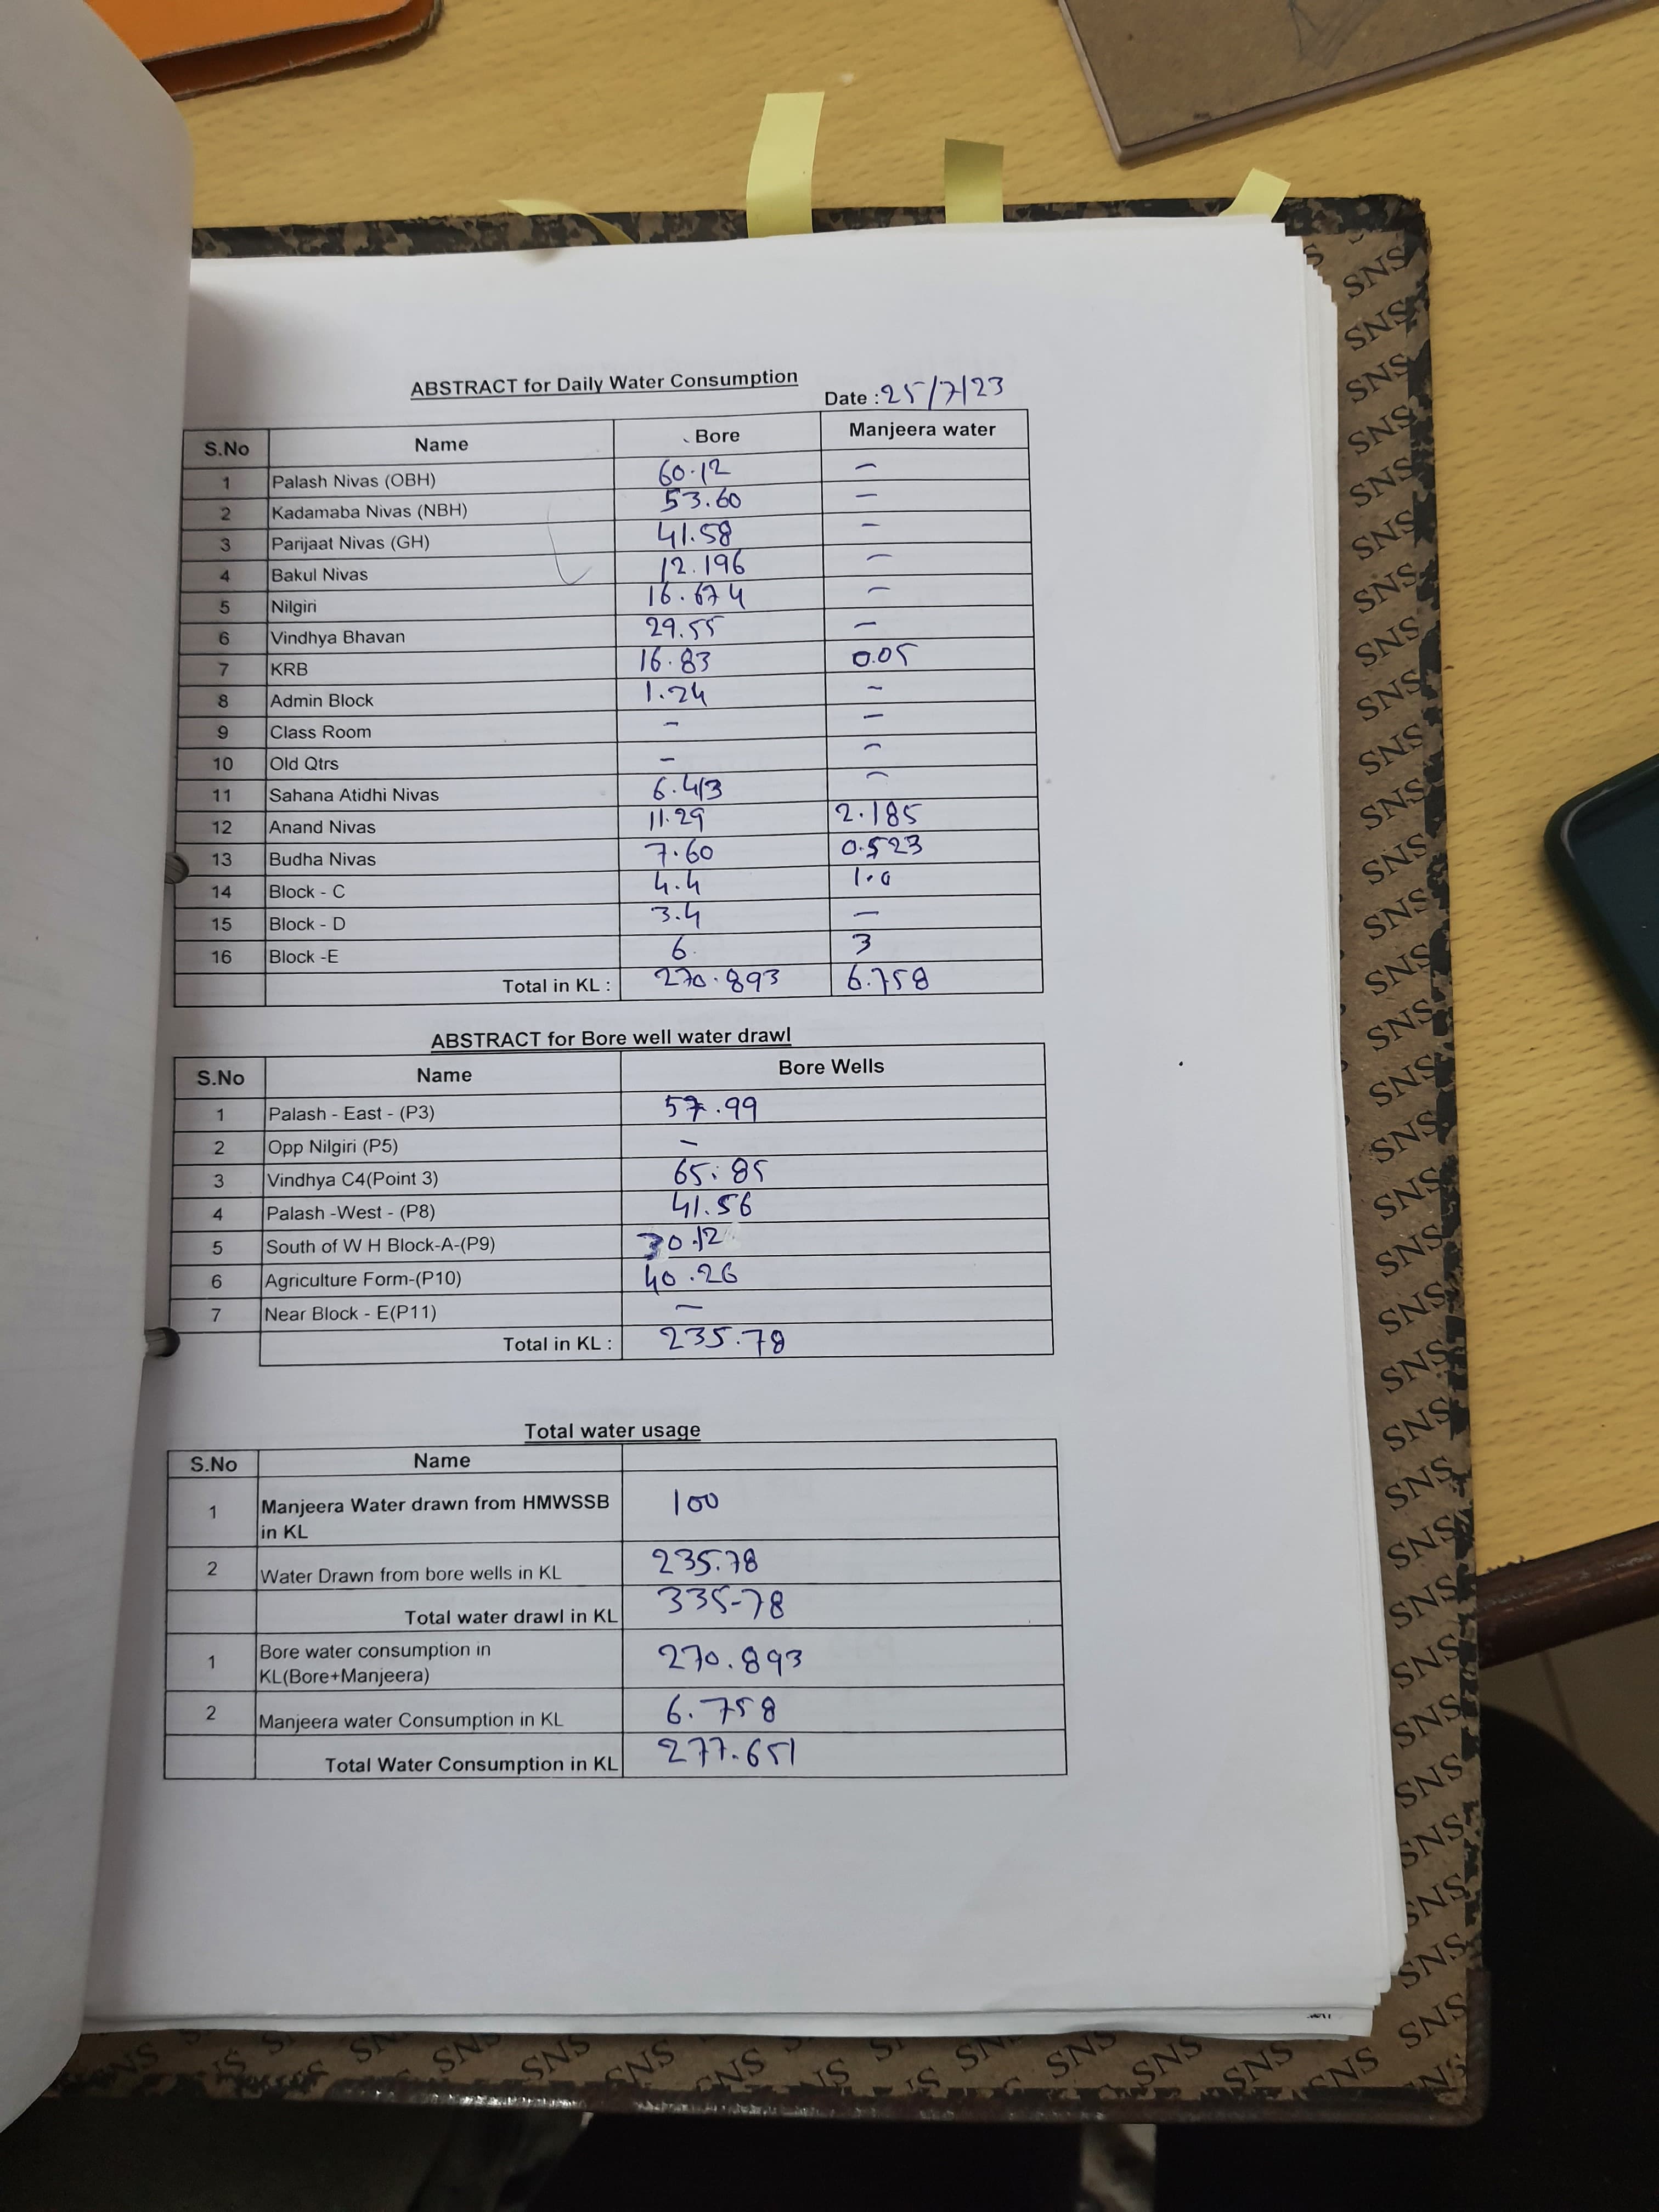 ABSTRACT for Daily Water Consumption
Date : 25/7/23
S.No Name Bore Manjeera water
1 Palash Nivas (OBH) 60.12 –
2 Kadamaba Nivas (NBH) 53.60 –
3 Parijaat Nivas (GH) 41.58 –
4 Bakul Nivas 12.196 –
5 Nilgiri 16.674 –
6 Vindhya Bhavan 29.55 –
7 KRB 16.83 0.05
8 Admin Block 1.24 –
9 Class Room – –
10 Old Qtrs – –
11 Sahana Atidhi Nivas 6.413 –
12 Anand Nivas 11.29 2.185
13 Budha Nivas 7.60 0.523
14 Block - C 4.4 1.0
15 Block - D 3.4 –
16 Block -E 6 3
Total in KL : 270.893 6.758
ABSTRACT for Bore well water drawl
S.No Name Bore Wells
1 Palash - East - (P3) 57.99
2 Opp Nilgiri (P5) –
3 Vindhya C4(Point 3) 65.85
4 Palash -West - (P8) 41.56
5 South of W H Block-A-(P9) 30.12
6 Agriculture Form-(P10) 40.26
7 Near Block - E(P11) –
Total in KL : 235.78
Total water usage
S.No Name
1 Manjeera Water drawn from HMWSSB 100
in KL
2 Water Drawn from bore wells in KL 235.78
Total water drawl in KL 335-78
1 Bore water consumption in 270.893
KL(Bore+Manjeera)
2 Manjeera water Consumption in KL 6.758
Total Water Consumption in KL 277.651
SNS